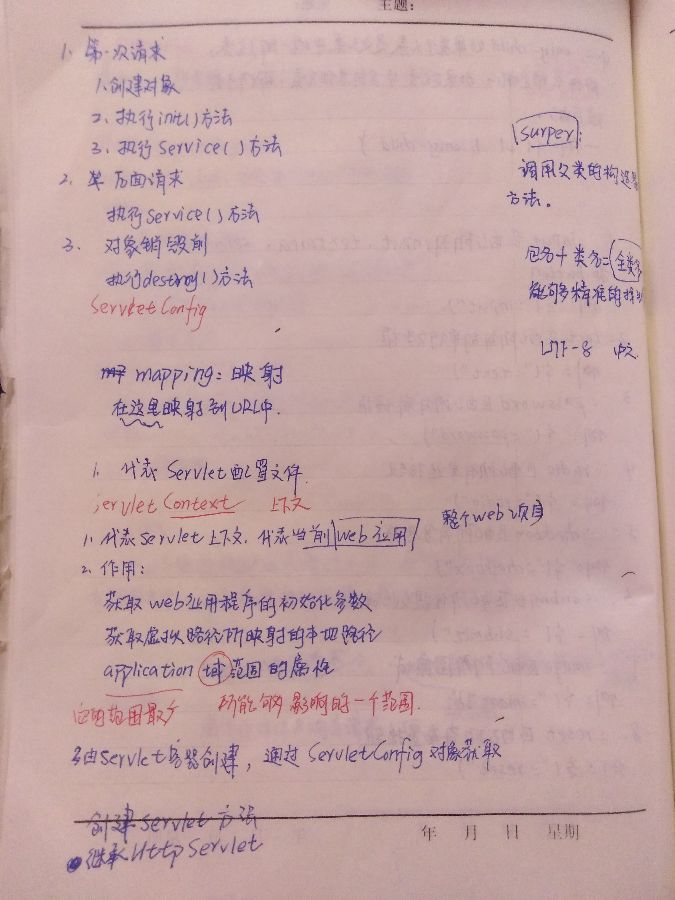 主题:
1. 第一次请求
1.创建对象
2. 执行init()方法
3. 执行Service()方法
2. 单页面请求
执行Service()方法
3. 对象销毁前
执行destroy()方法
ServletConfig
surper:
调用父类的构造器
方法。
包名+类名=全类名
能够多精准的择
UTF-8 中文
mapping: 映射
在这里映射到URL中.
1. 代表Servlet配置文件.
servlet Context 上下文
1. 代表Servlet上下文. 代表当前web应用 整个web项目
2. 作用:
获取web应用程序的初始化参数
获取虚拟路径所映射的本地路径
application 域范围的属性
应用范围最大 所能够影响的一个范围.
3由Servlet容器创建, 通过ServletConfig对象获取
创建servlet方法
继承HttpServlet
年 月 日 星期